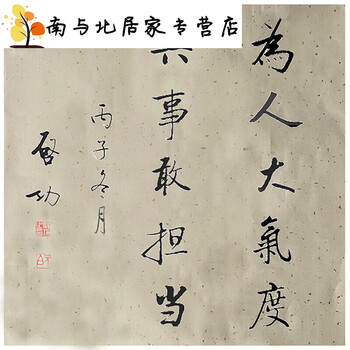 南与北居家专营店
為人大氣度
事敢担当
丙子冬月
启功